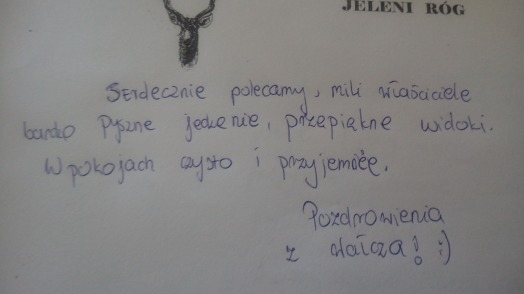 JELENI RÓG
Serdecznie polecamy, mili właściciele
bardzo Pyszne jedzenie, przepiękne widoki.
W pokojach czysto i przyjemnie.
Pozdrowienia
z Wałcza! :)